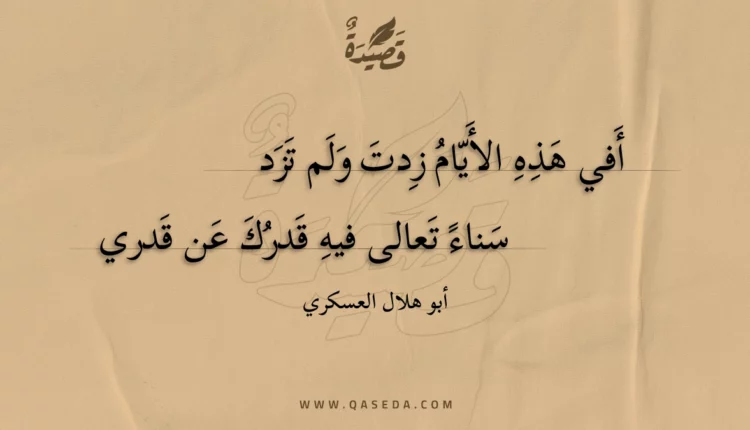 قَصِيْدَةٌ
أَفي هَذِهِ الأَيّامُ زِدتَ وَلَم تَزَد
سَناءً تَعالى فيهِ قَدرُكَ عَن قَدري
أبو هلال العسكري
WWW.QASEDA.COM